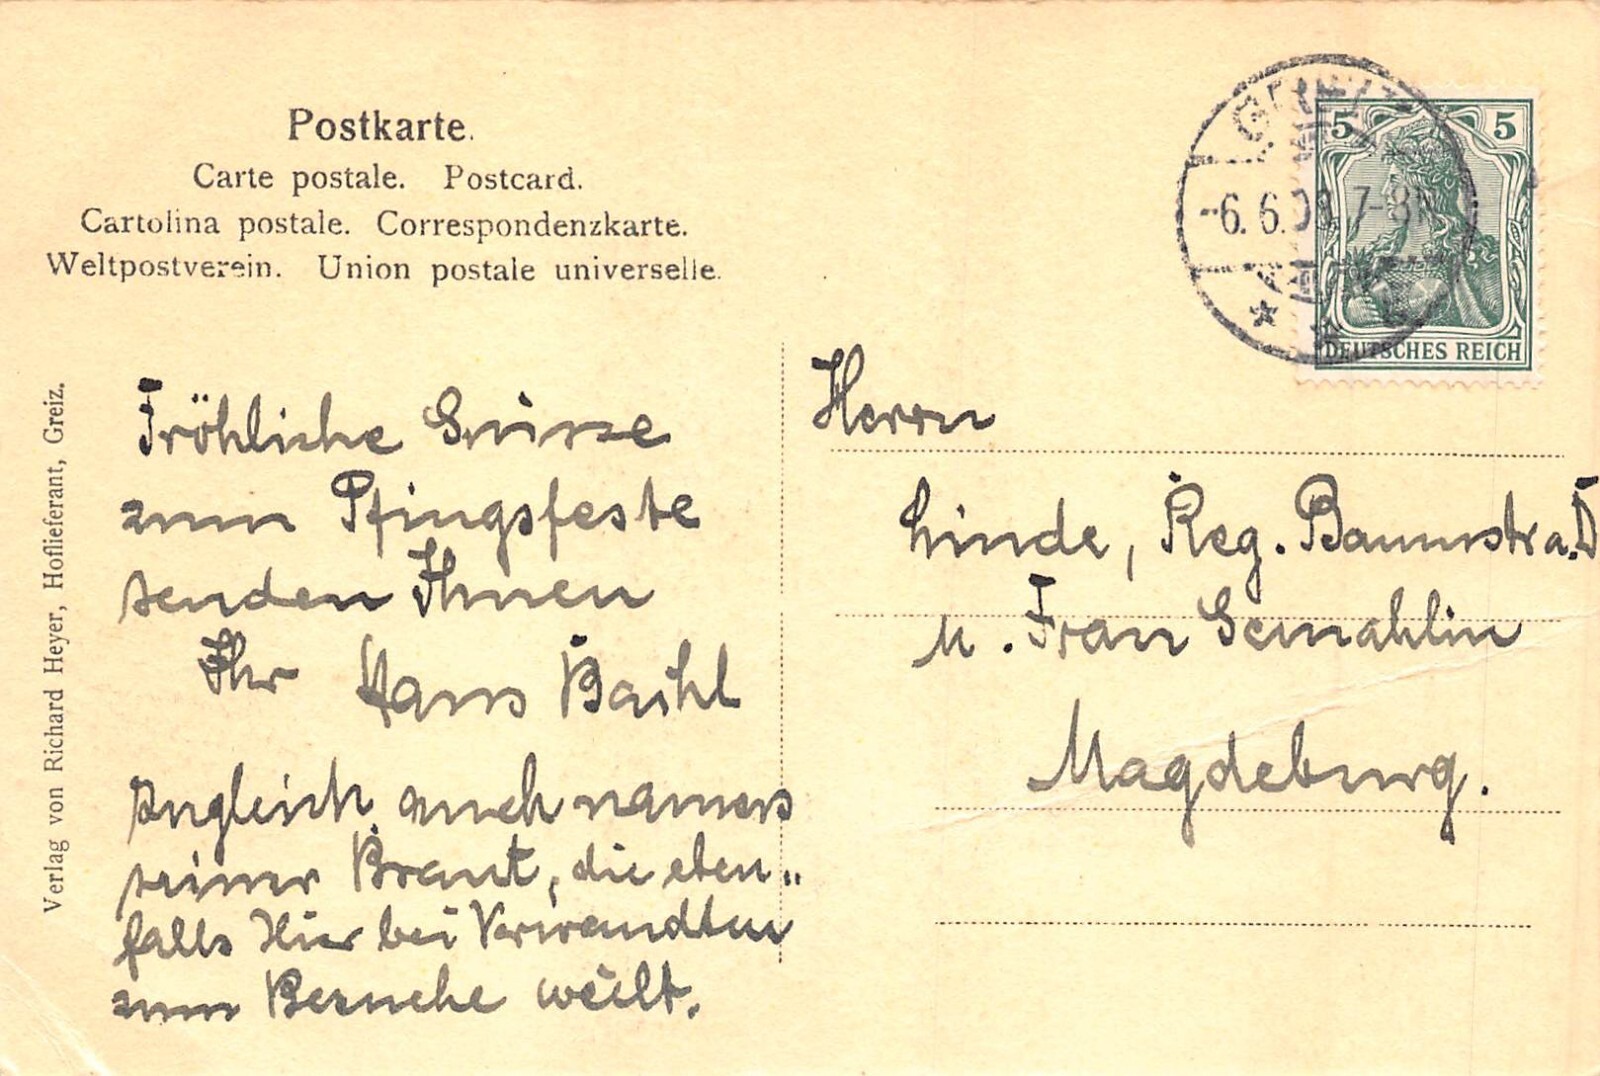 Postkarte.
Carte postale. Postcard.
Cartolina postale. Correspondenzkarte.
Weltpostverein. Union postale universelle.
5 5
DEUTSCHES REICH
-6.6.09.7-8N
Verlag von Richard Heyer, Hoflieferant, Greiz.
Fröhliche Grüsse
zum Pfingsfeste
senden Ihnen
Ihr Hans
zugleich auch namens
seiner Braut, die eben„
falls Hier bei Verwandten
zum Besuche weilt.
Herrn
Linde, Reg.
u. Frau Gemahlin
Magdeburg.